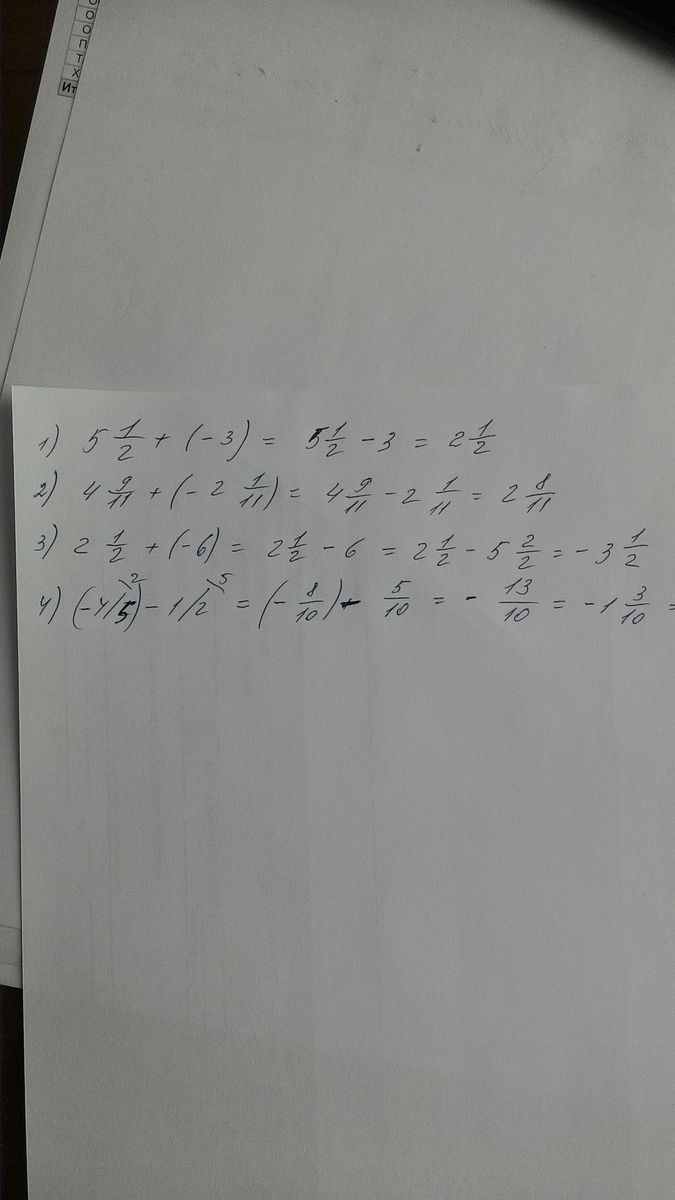 О
О
О
П
Г
Х
Ит
1) 5 1/2 + (-3) = 5 1/2 - 3 = 2 1/2
2) 4 9/11 + (-2 1/11) = 4 9/11 - 2 1/11 = 2 8/11
3) 2 1/2 + (-6) = 2 1/2 - 6 = 2 1/2 - 5 2/2 = -3 1/2
4) (-4/5\2) - 1/2\5 = (-8/10) - 5/10 = - 13/10 = -1 3/10 =